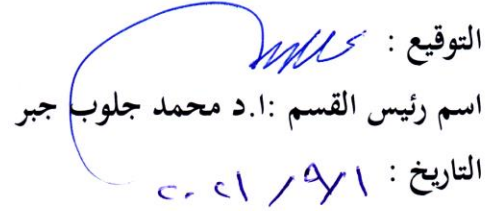 التوقيع :
اسم رئيس القسم :ا.د محمد جلوب جبر
التاريخ : ٢٠٢١ / ٩ / ١